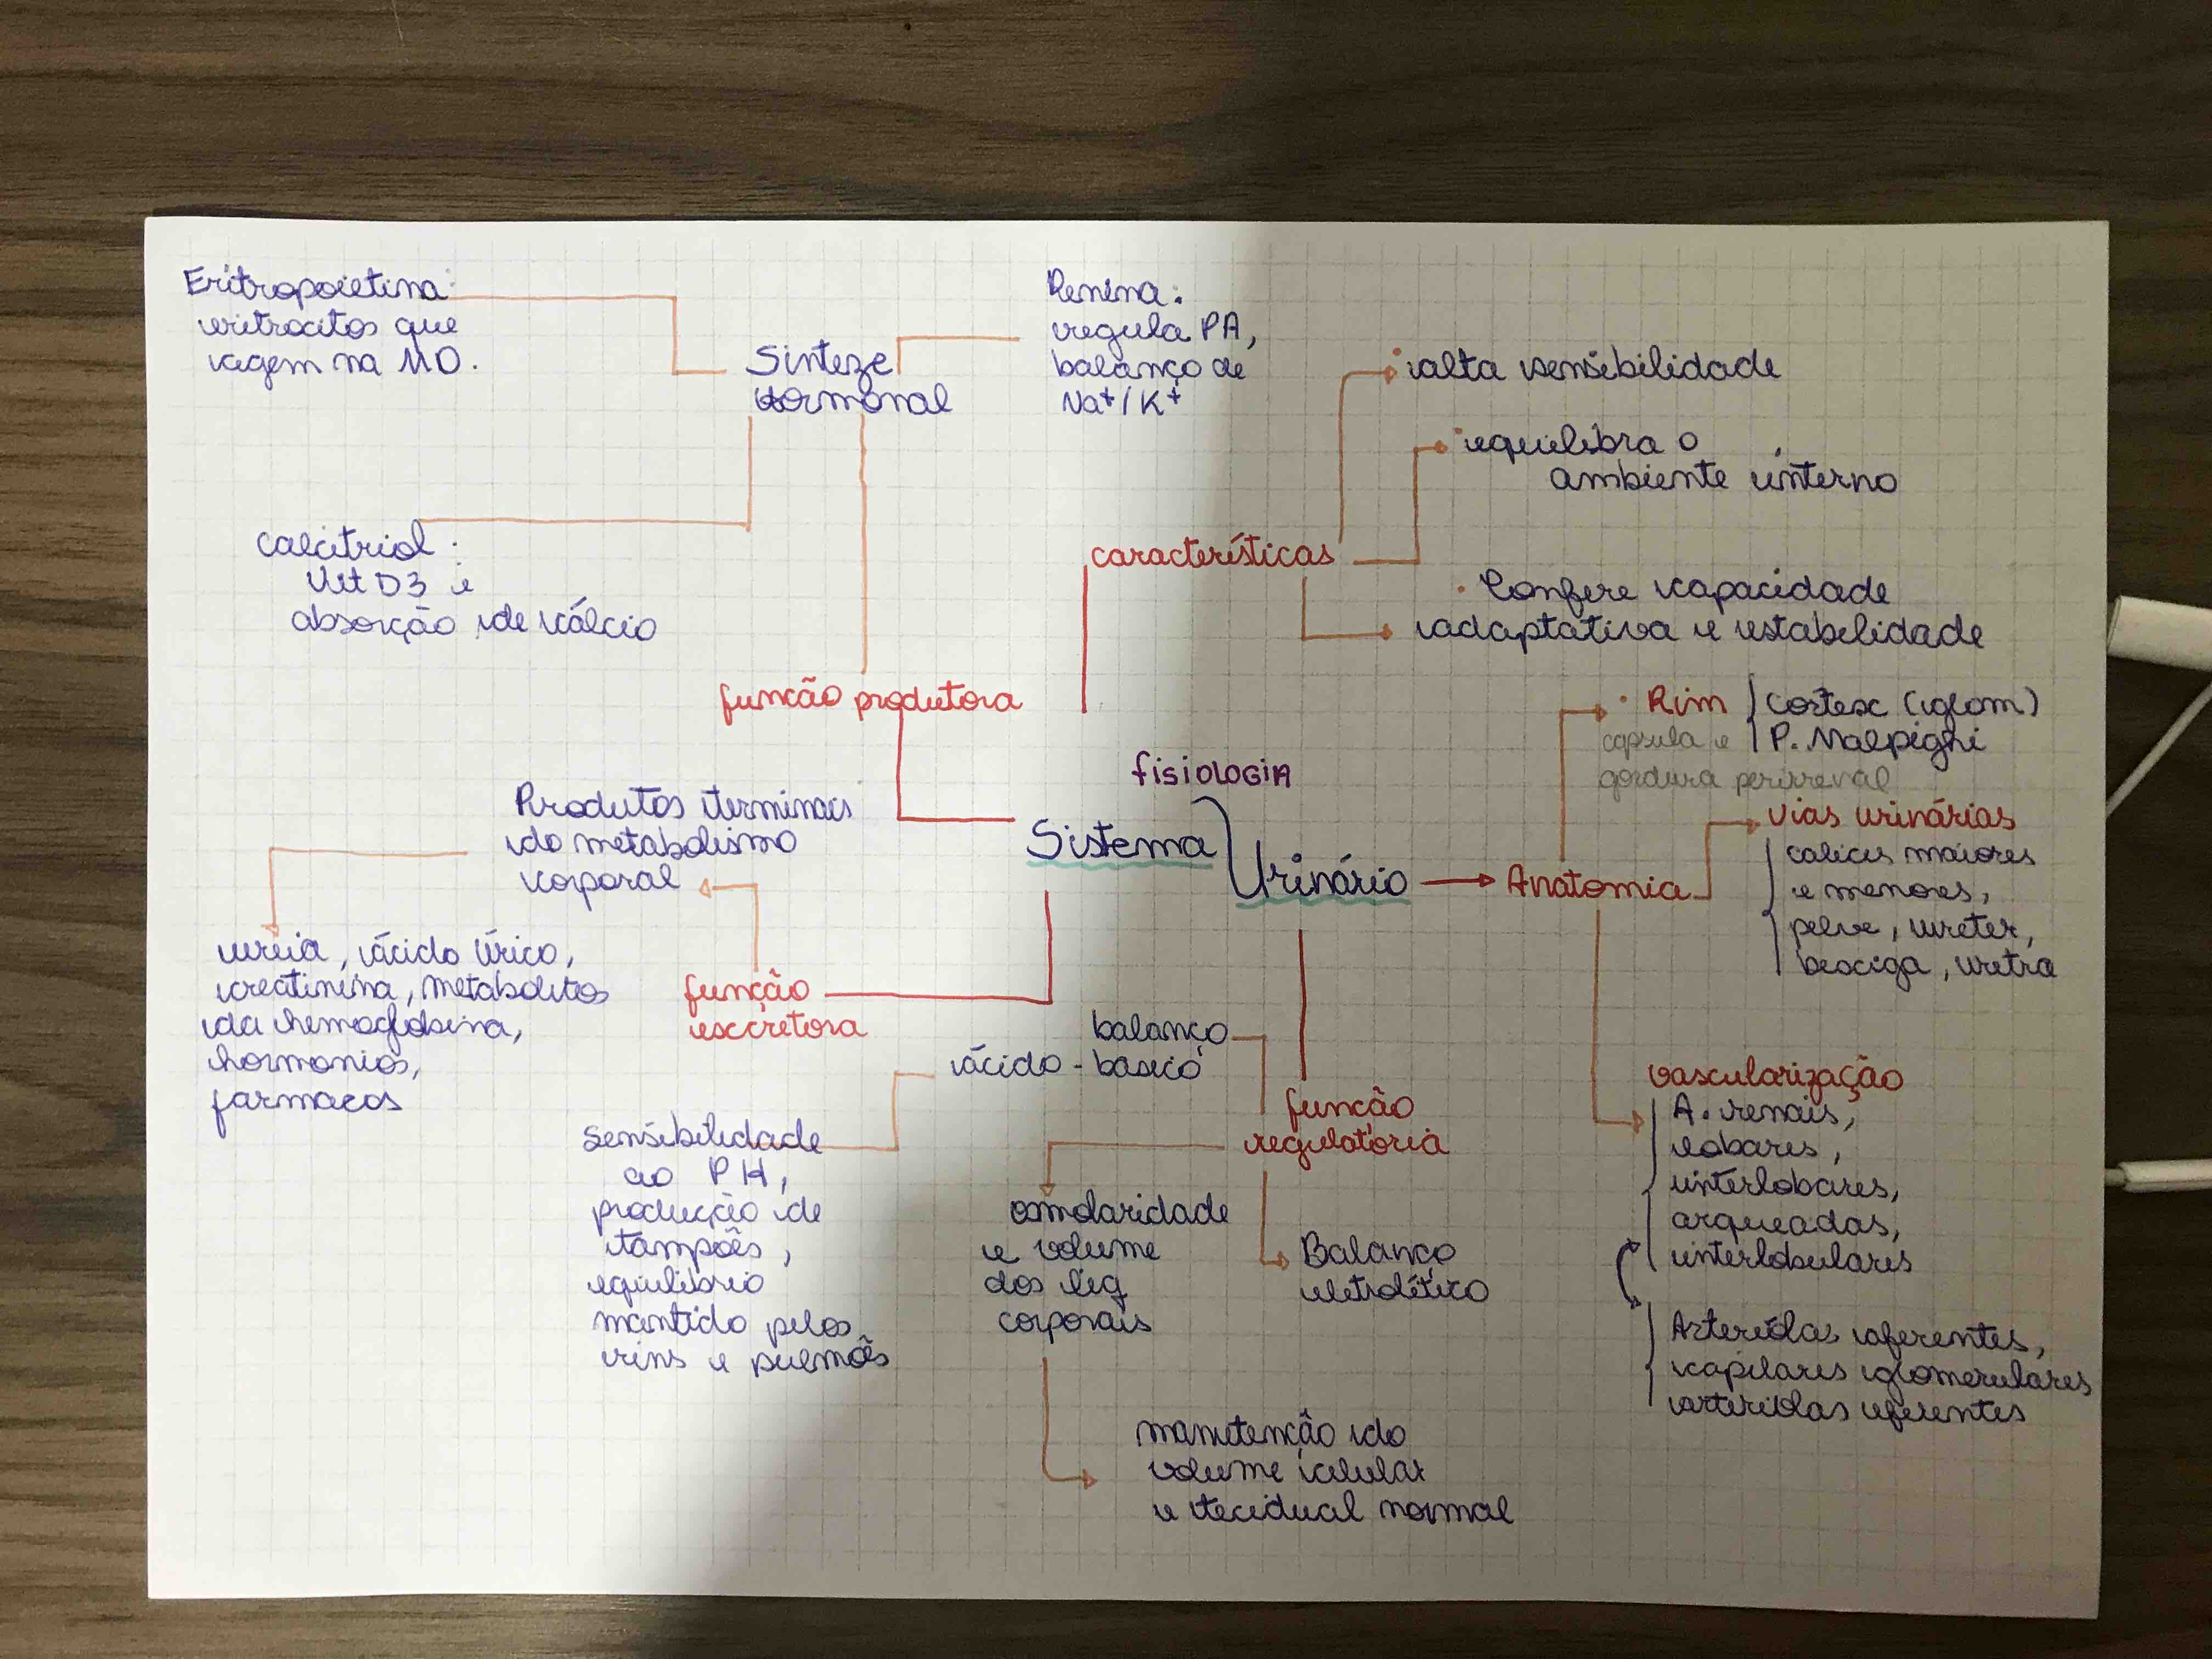 Eritropoietina:
eritrocitos que
agem na MO.
Sinteze
Hormonal
Renina:
regula PA,
balanço de
Na+/K+
Calcitriol:
Vit D3 e
absorção de cálcio
função produtora
características
· alta sensibilidade
· equilibra o
ambiente interno
· Confere capacidade
adaptativa e estabilidade
fisiologia
Sistema
Urinário
Anatomia
· Rim
capsula e
gordura perirrenal
Cortex (glom)
P. Malpighi
vias urinárias
calices maiores
e menores,
pelve, ureter,
bexiga, uretra
vascularização
A. renais,
lobares,
interlobares,
arqueadas,
interlobulares
Arteríolas aferentes,
capilares glomerulares
arteríolas eferentes
Produtos terminais
do metabolismo
corporal
função
escretora
ureia, ácido úrico,
creatinina, metabolitos
da hemoglobina,
hormonios,
farmacos
balanço
ácido-basico
função
regulatória
Sensibilidade
ao PH,
produção de
tampões,
equilibrio
mantido pelos
rins e pulmões
osmolaridade
e volume
dos liq
corporais
Balanço
eletrolítico
manutenção do
volume celular
e tecidual normal